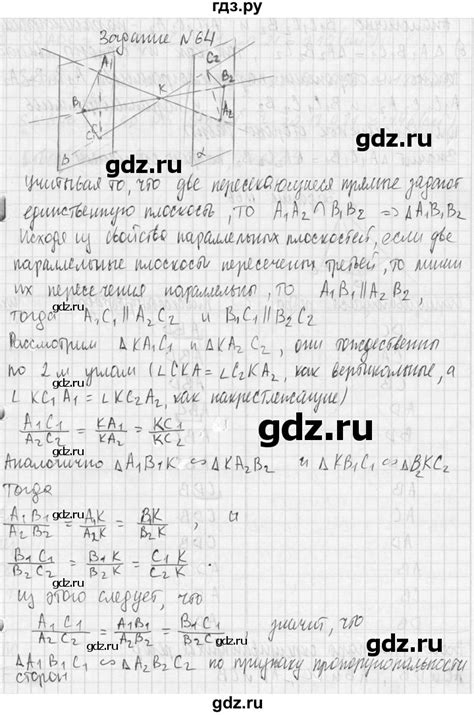 гдз.ру
Задание №64
A₁ C₂
K B₂
B₁
C₁ A₂
β α
gdz.ru
gdz.ru
Учитывая то, что две пересекающиеся прямые задают
единственную плоскость, то A₁A₂ ∩ B₁B₂ => △A₁B₁B₂
Исходя из свойства параллельных плоскостей, если две
параллельные плоскости пересечены третьей, то линии
их пересечения параллельны, то A₁B₁ || A₂B₂,
тогда A₁C₁ || A₂C₂ и B₁C₁ || B₂C₂
gdz.ru
Рассмотрим △KA₁C₁ и △KA₂C₂, они тождественны
по 2м углам (∠C₁KA₁=∠C₂KA₂, как вертикальные, а
∠KC₁A₁=∠KC₂A₂, как накрестлежащие)
A₁C₁/A₂C₂ = KA₁/KA₂ = KC₁/KC₂
gdz.ru
Аналогично △A₁B₁K ∽ △KA₂B₂ и △KB₁C₁ ∽ △B₂KC₂
тогда
A₁B₁/A₂B₂ = A₁K/A₂K = B₁K/B₂K , и
gdz.ru
B₁C₁/B₂C₂ = B₁K/B₂K = C₁K/C₂K .
gdz.ru
из этого следует, что
A₁C₁/A₂C₂ = A₁B₁/A₂B₂ = B₁C₁/B₂C₂ значит, что
gdz.ru
△A₁B₁C₁ ∽ △A₂B₂C₂ по признаку пропорциональности
сторон
gdz.ru
gdz.ru